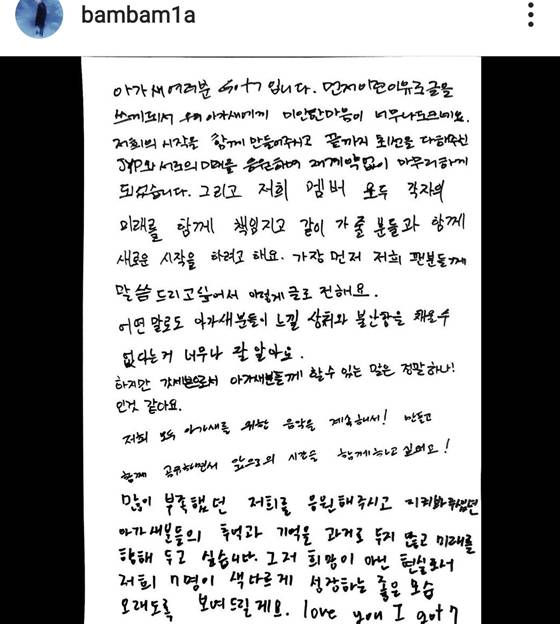 bambam1a
아가새여러분 Got7 입니다. 먼저 이런이유로글을
쓰게되서 우리 아가새에게 미안한마음이 너무나도크네요.
저희의 시작을 함께 만들어주시고 끝까지 최선을 다해주신
JYP와 서로의 미래를 응원하며 재계약없이 마무리하게
되었습니다. 그리고 저희 멤버 모두 각자의
미래를 함께 책임지고 같이 가 줄 분들과 함께
새로운 시작을 하려고 해요. 가장 먼저 저희 팬분들께
말씀 드리고싶어서 이렇게 글로 전해요.
어떤 말로도 아가새분들이 느낄 상처와 불안함을 채울수
없다는거 너무나 잘 알아요.
하지만 갓세븐으로서 아가새분들께 할수 있는 말은 정말하나!
인것 같다요.
저희 모두 아가새를 위한 음악을 계속해서! 만들고
함께 공유하면서 앞으로의 시간을 함께하고 싶어요!
많이 부족했던 저희를 응원해주시고 지켜봐주셨던
아가새분들의 추억과 기억을 과거로 두지 않고 미래를
향해 두고 싶습니다. 그저 희망이 아닌 현실로서
저희 7명이 색다르게 성장하는 좋은 모습
오래도록 보여드릴게요. love you I got7